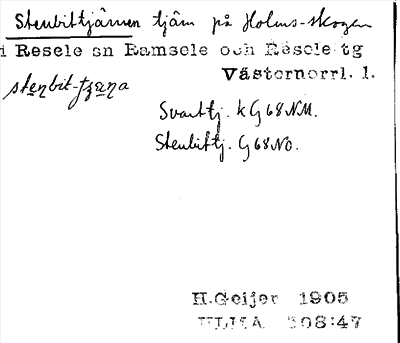 Stenbittjärnen tjärn på Holms-skogen
i Resele sn Ramsele och Resele tg
Västernorrl. l.
Svarttj. k G68NM.
Stenbittj. G68NO.
H.Geijer 1905
ULMA 308:47